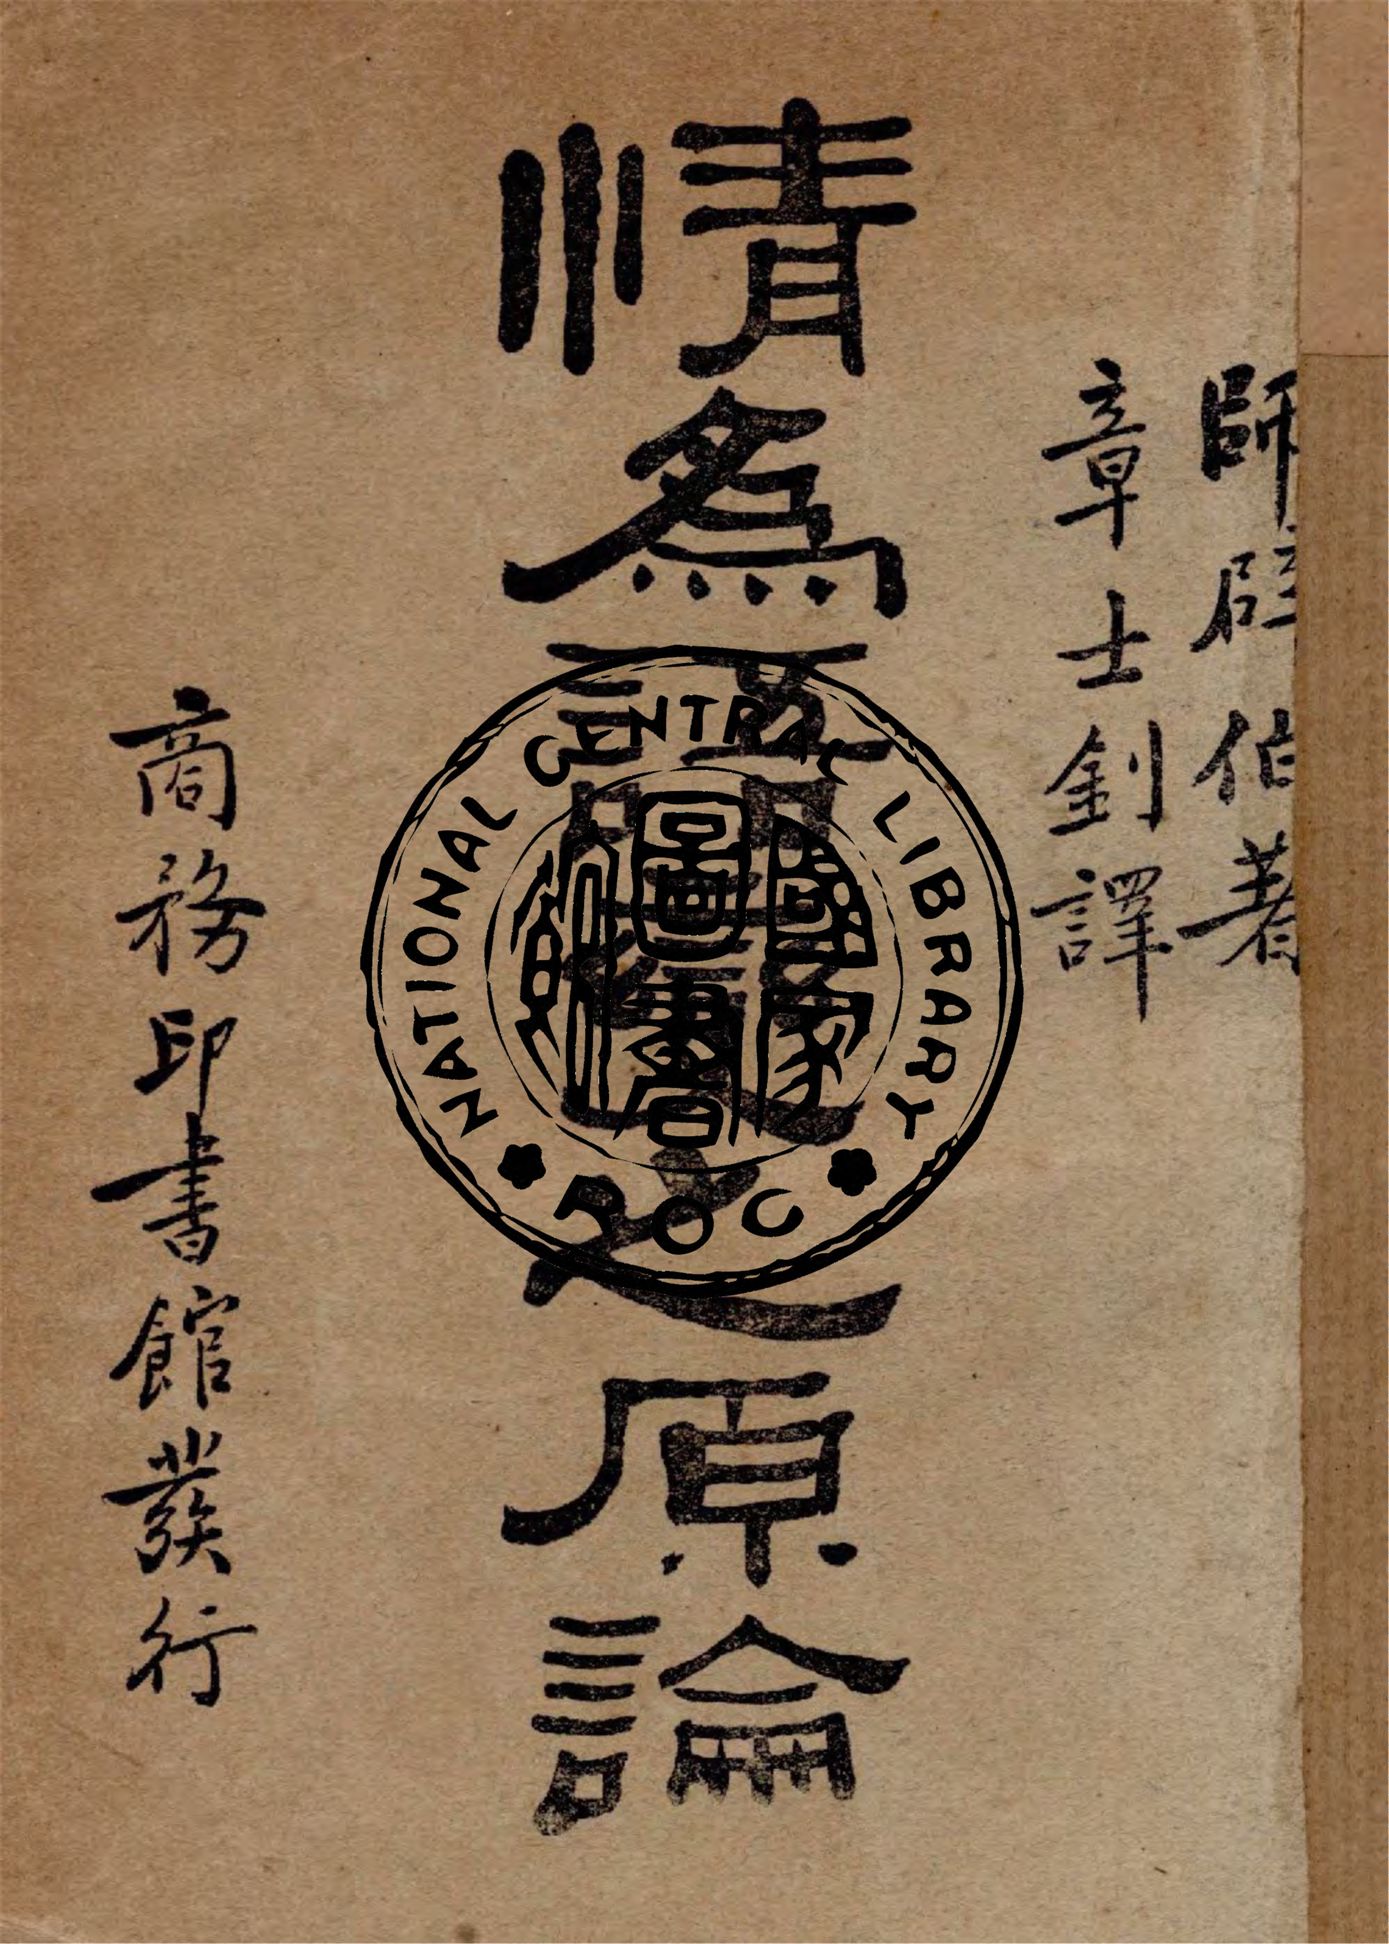 師辟伯著
章士釗譯
情為語變之原論
商務印書館發行
NATIONAL CENTRAL LIBRARY
ROC
國家
圖書
館